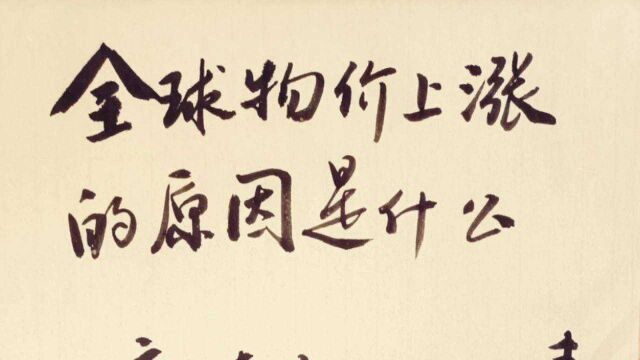 全球物价上涨
的原因是什么